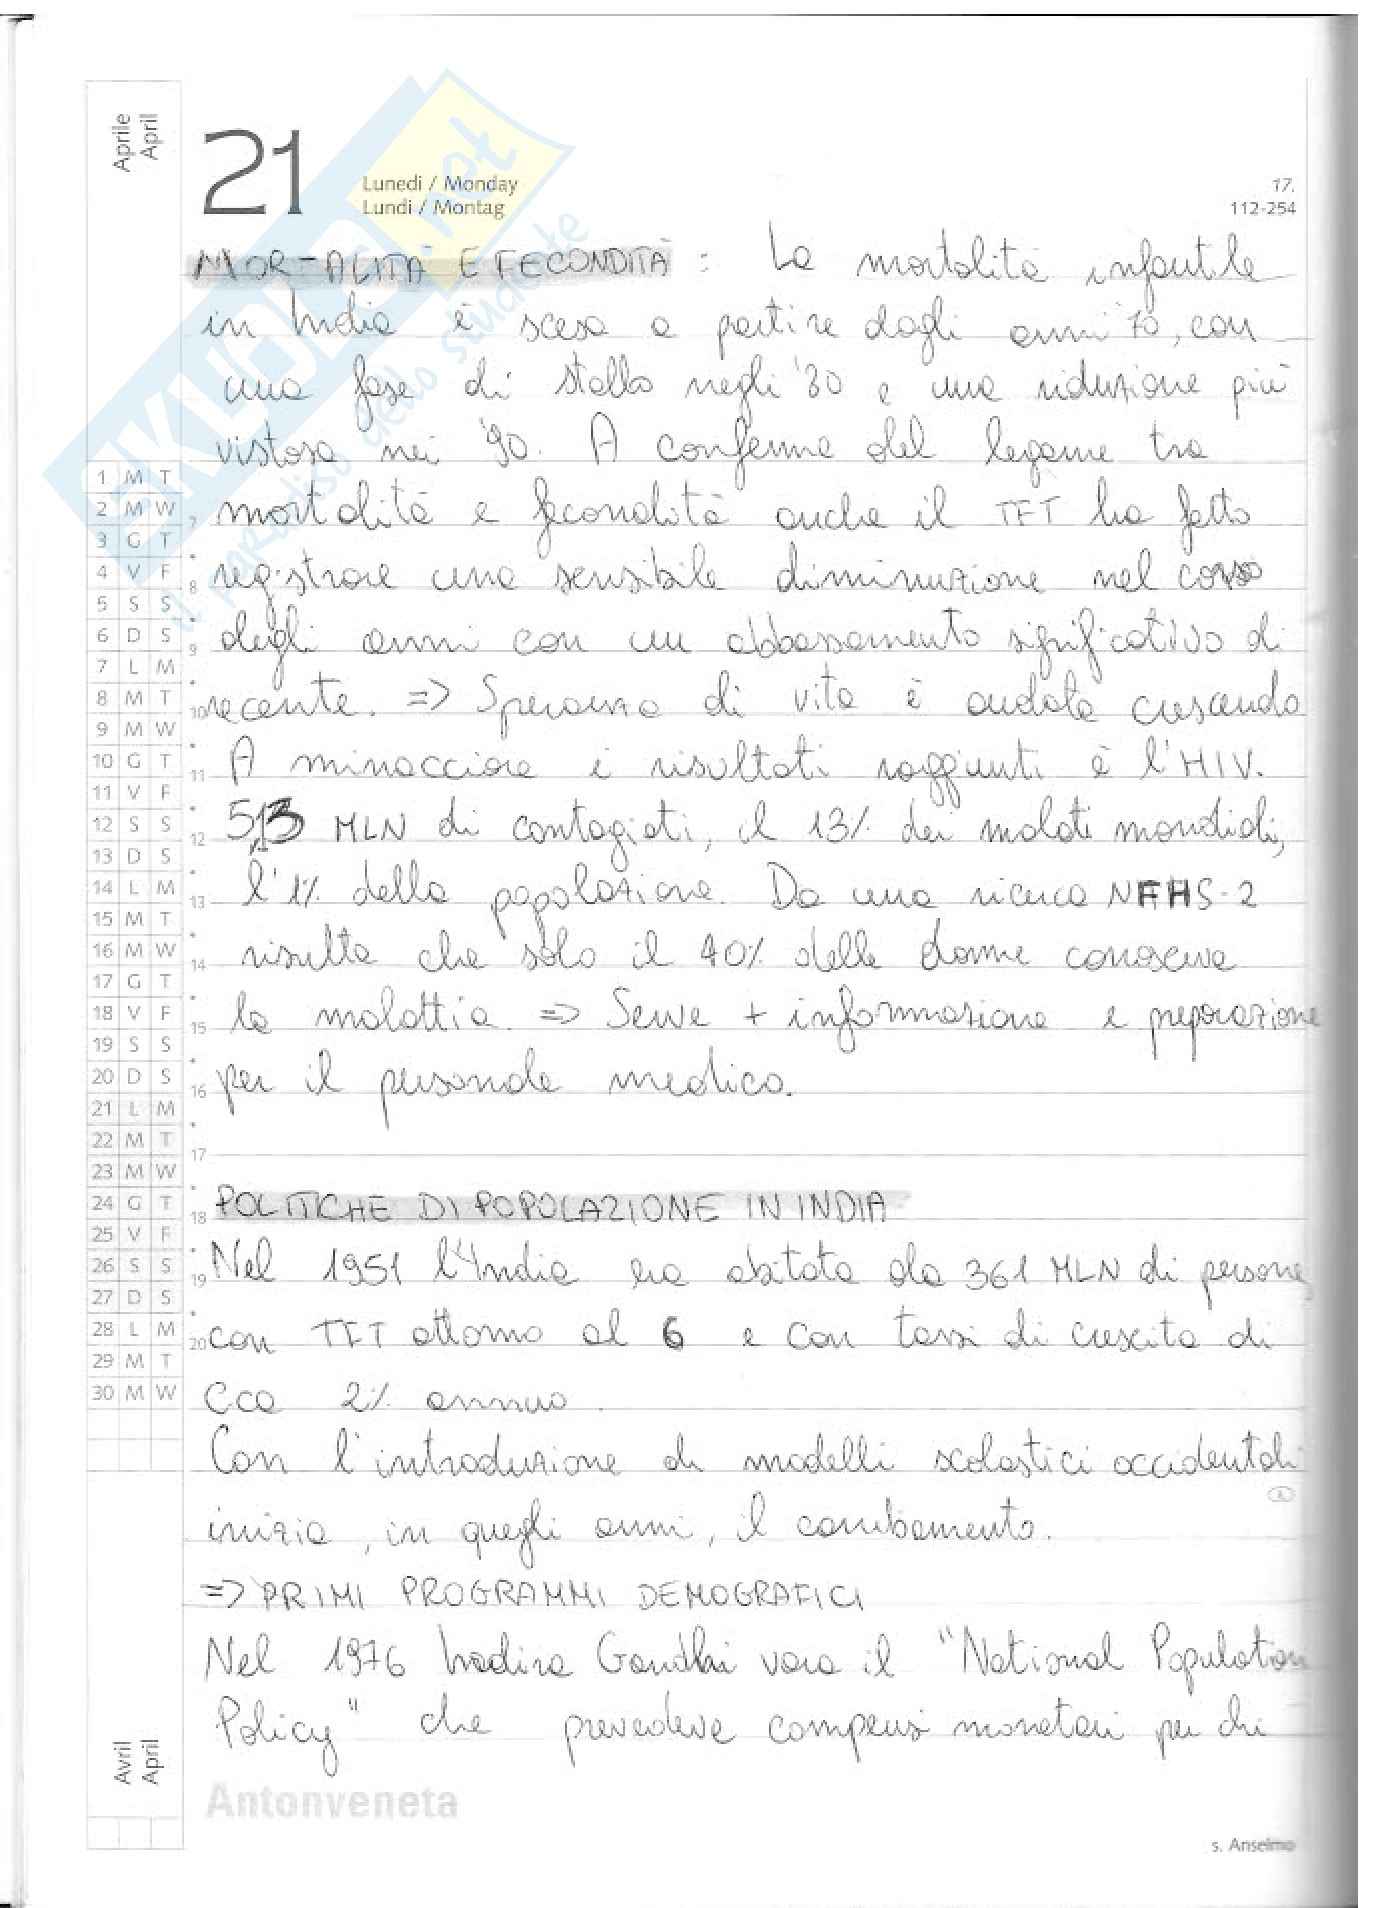 Aprile
April
21
Lunedì / Monday
Lundi / Montag
17.
112-254
SKUOLA.net
il paradiso dello studente
MORTALITÀ E FECONDITÀ : La mortalità infantile
in India è scesa a partire dagli anni 70, con
una fase di stallo negli '80 e una riduzione più
vistosa nei '90. A conferma del legame tra
mortalità e fecondità anche il TFT ha fatto
registrare una sensibile diminuzione nel corso
degli anni con un abbassamento significativo di
recente. => Speranza di vita è andata crescendo
A minacciare i risultati raggiunti è l'HIV.
5,13 MLN di contagiati, il 13% dei malati mondiali,
l'1% della popolazione. Da una ricerca NFHS-2
risulta che solo il 40% delle donne conosceva
la malattia. => Serve + informazione e preparazione
per il personale medico.
POLITICHE DI POPOLAZIONE IN INDIA
Nel 1951 l'India era abitata da 361 MLN di persone
con TFT attorno al 6 e con tassi di crescita di
cca 2% annuo.
Con l'introduzione di modelli scolastici occidentali
inizia, in quegli anni, il cambiamento.
=> PRIMI PROGRAMMI DEMOGRAFICI
Nel 1976 Indira Gandhi vara il "National Population
Policy" che prevedeva compensi monetari per chi
1 M T
2 M W
3 G T
4 V F
5 S S
6 D S
7 L M
8 M T
9 M W
10 G T
11 V F
12 S S
13 D S
14 L M
15 M T
16 M W
17 G T
18 V F
19 S S
20 D S
21 L M
22 M T
23 M W
24 G T
25 V F
26 S S
27 D S
28 L M
29 M T
30 M W
7
8
9
10
11
12
13
14
15
16
17
18
19
20
Avril
April
Antonveneta
s. Anselmo